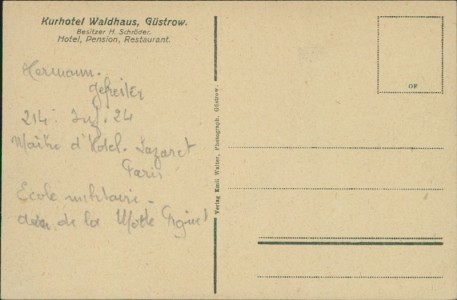 Kurhotel Waldhaus, Güstrow.
Besitzer H. Schröder.
Hotel, Pension, Restaurant.
Hermann.
Gefreiter
214. Inf. 24
Maître d'Hotel. Lazaret
Paris
Ecole militaire.
de la Motte Piquet
Verlag Emil Walter, Photograph, Güstrow.